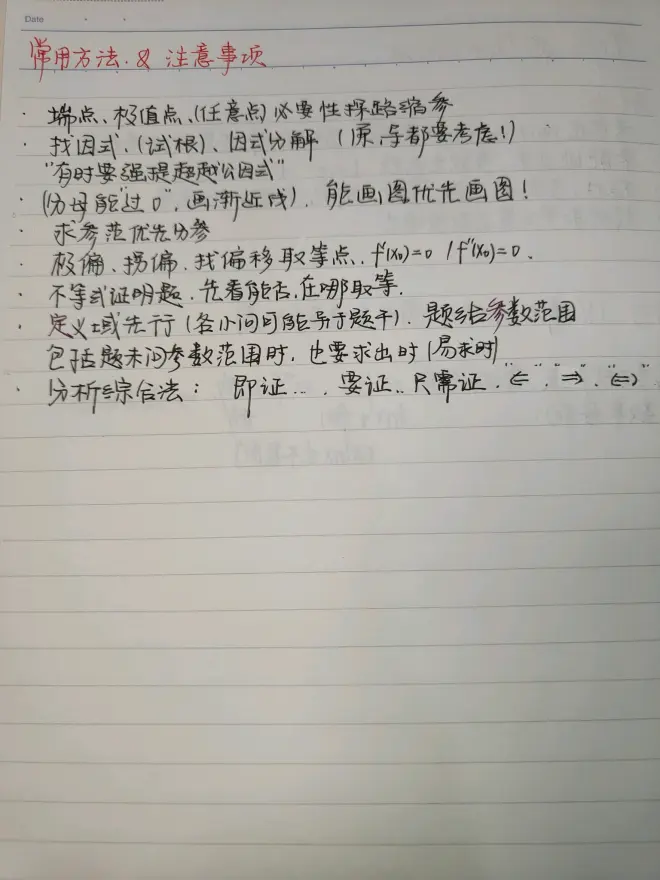 Date
常用方法 & 注意事项
· 端点、极值点、(任意点)必要性探路缩参
· 找因式、(试根)、因式分解 (原,导都要考虑!)
"有时要强提超越公因式"
· (分母能"过0",画渐近线). 能画图优先画图!
· 求参范优先分参
· 极偏、拐偏、找偏移取等点. f'(x₀)=0 / f''(x₀)=0.
· 不等式证明题. 先看能否,在哪取等.
· 定义域先行(各小问可能异于题干). 题给参数范围
包括题未问参数范围时, 也要求出时(易求时)
· 分析综合法: 即证..., 要证..只需证."⇐"."⇒".“⇔”